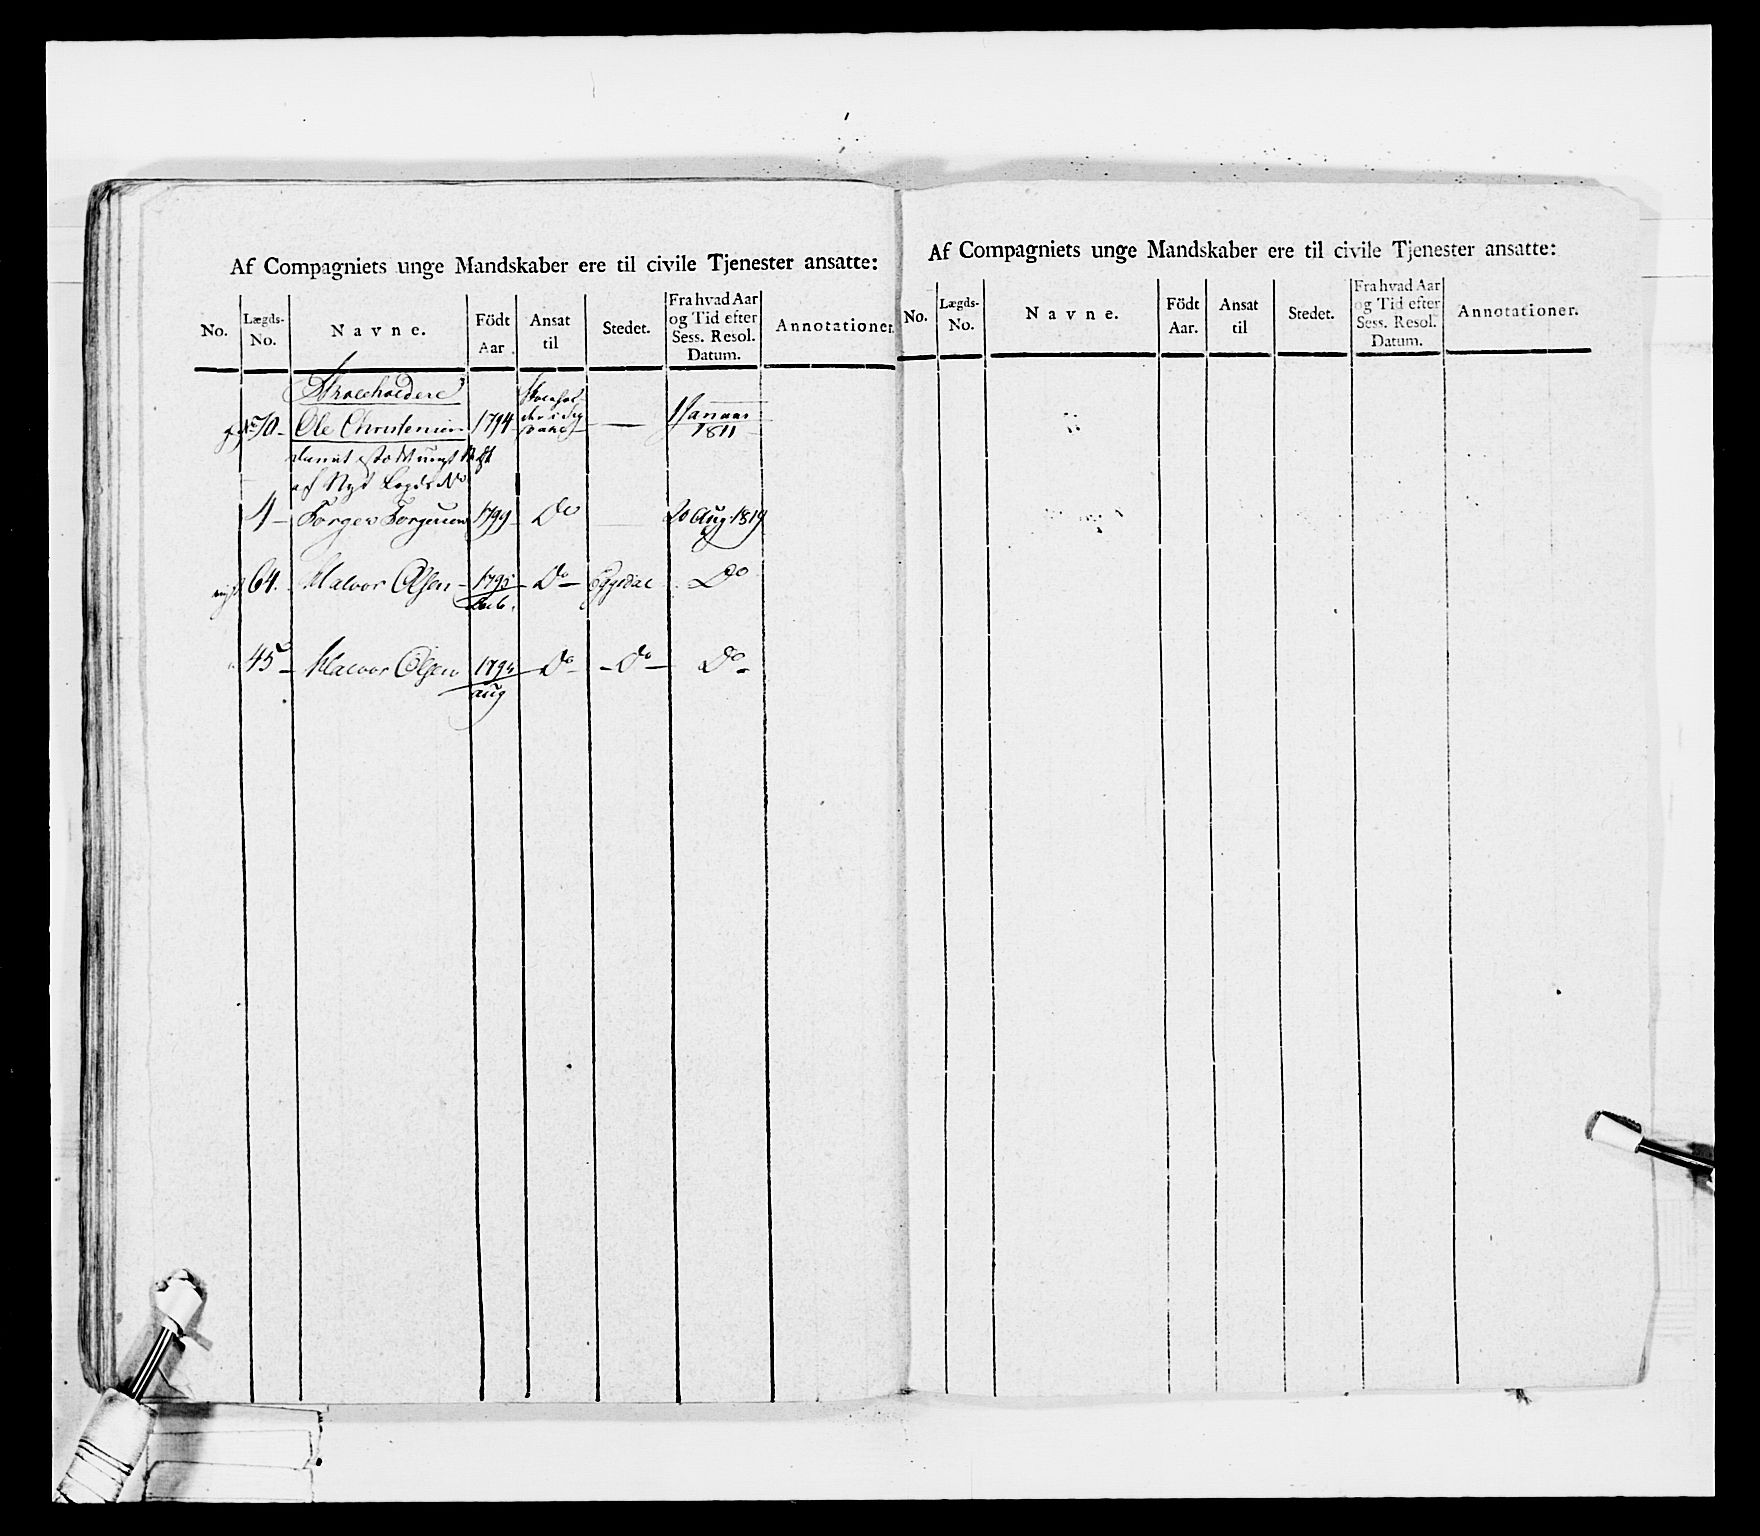 Af Compagniets unge Mandskaber ere til civile Tjenester ansatte:
No. Lægds-No. Navne. Födt Aar. Ansat til Stedet. Fra hvad Aar og Tid efter Sess. Resol. Datum. Annotationer.
70 Ole Christensen 1794 — Januar 1811
af Nye Lægds No
4 Torger Torgersen 1799 Do 20 Aug 1819
64. Halvor Olsen 1795 Do Eggedal Do
45 Halvor Olsen 179 aug Do Do Do
Af Compagniets unge Mandskaber ere til civile Tjenester ansatte:
No. Lægds-No. Navne. Födt Aar. Ansat til Stedet. Fra hvad Aar og Tid efter Sess. Resol. Datum. Annotationer.